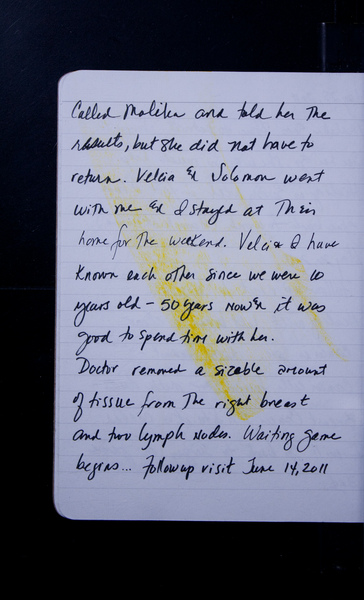 Called Malika and told her the
results, but she did not have to
return. Velcia & Solomon went
with me & I stayed at Their
home for The weekend. Velcia & I have
Known each other since we were 10
years old - 50 years now & it was
good to spend time with her.
Doctor removed a sizable amount
of tissue from The right breast
and two lymph nodes. Waiting game
begins... Followup visit June 14, 2011